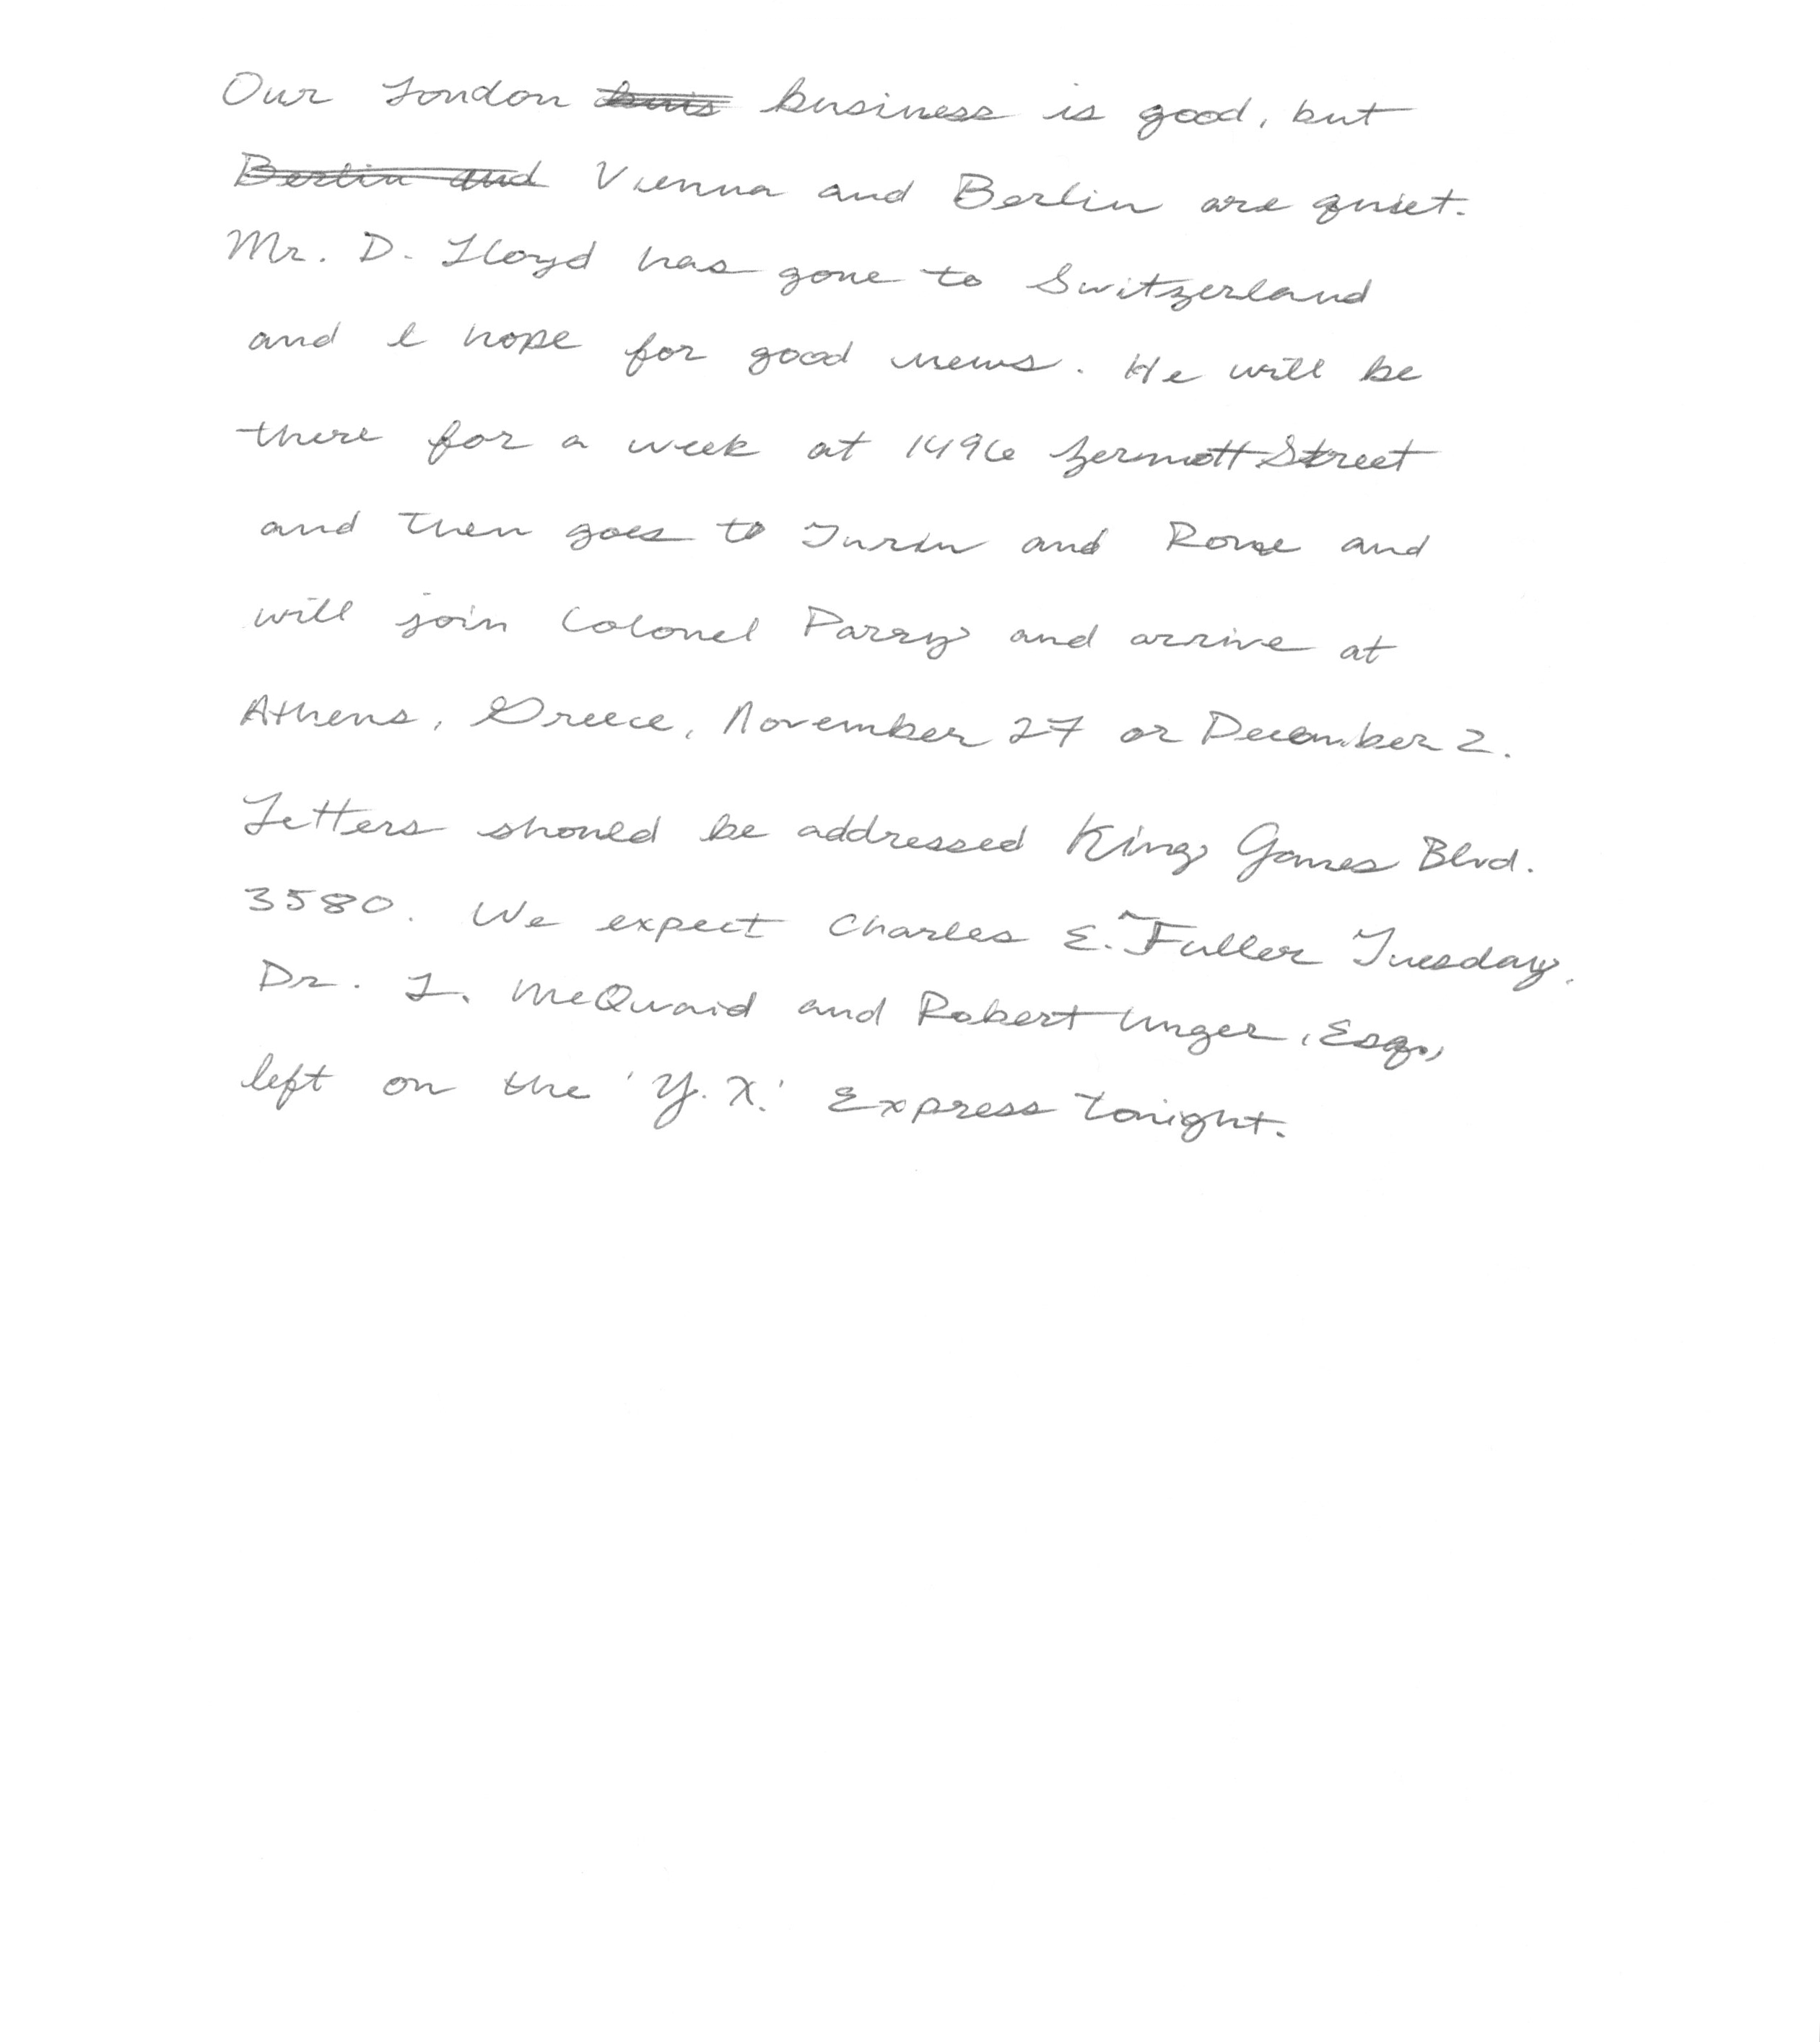 Our London business is good, but
Berlin and Vienna and Berlin are quiet.
Mr. D. Lloyd has gone to Switzerland
and I hope for good news. He will be
there for a week at 1496 Zermott Street
and then goes to Turin and Rome and
will join Colonel Parry and arrive at
Athens, Greece, November 27 or December 2.
Letters should be addressed King James Blvd.
3580. We expect Charles E. Fuller Tuesday.
Dr. L. McQuaid and Robert Unger, Esq.,
left on the 'Y.X.' Express tonight.